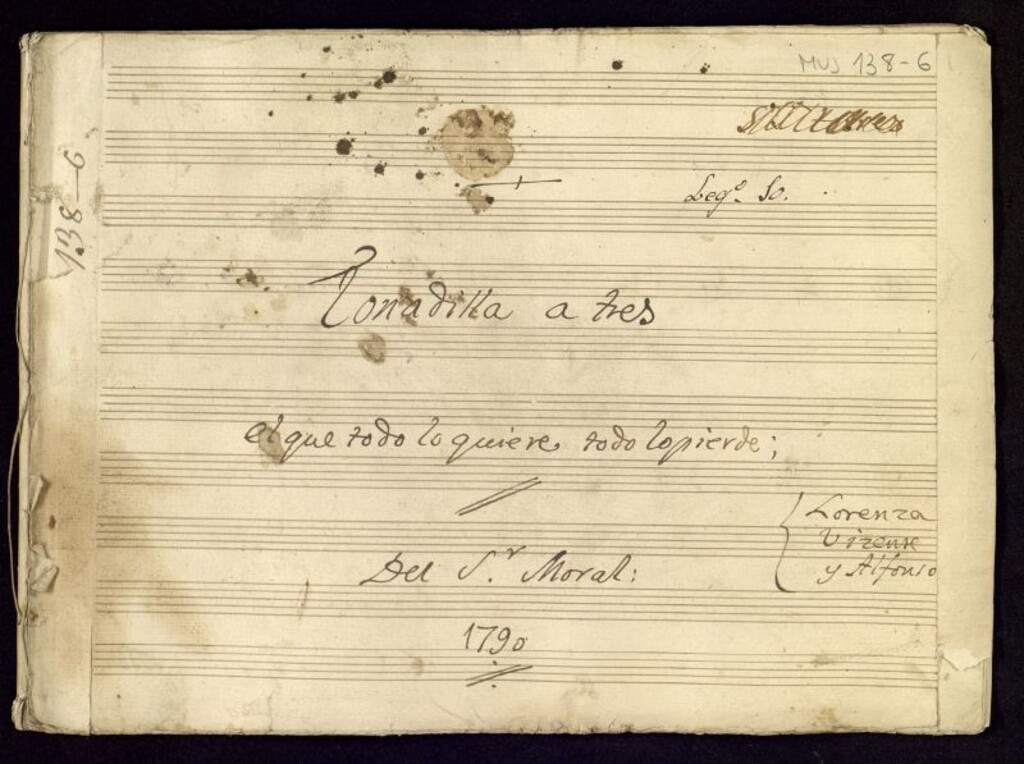 MUS 138-6
138-6
Leg.º 10.
Tonadilla a tres
el que todo lo quiere, todo lo pierde;
Lorenza
Vizente
y Alfonso
Del S.r Moral:
1790